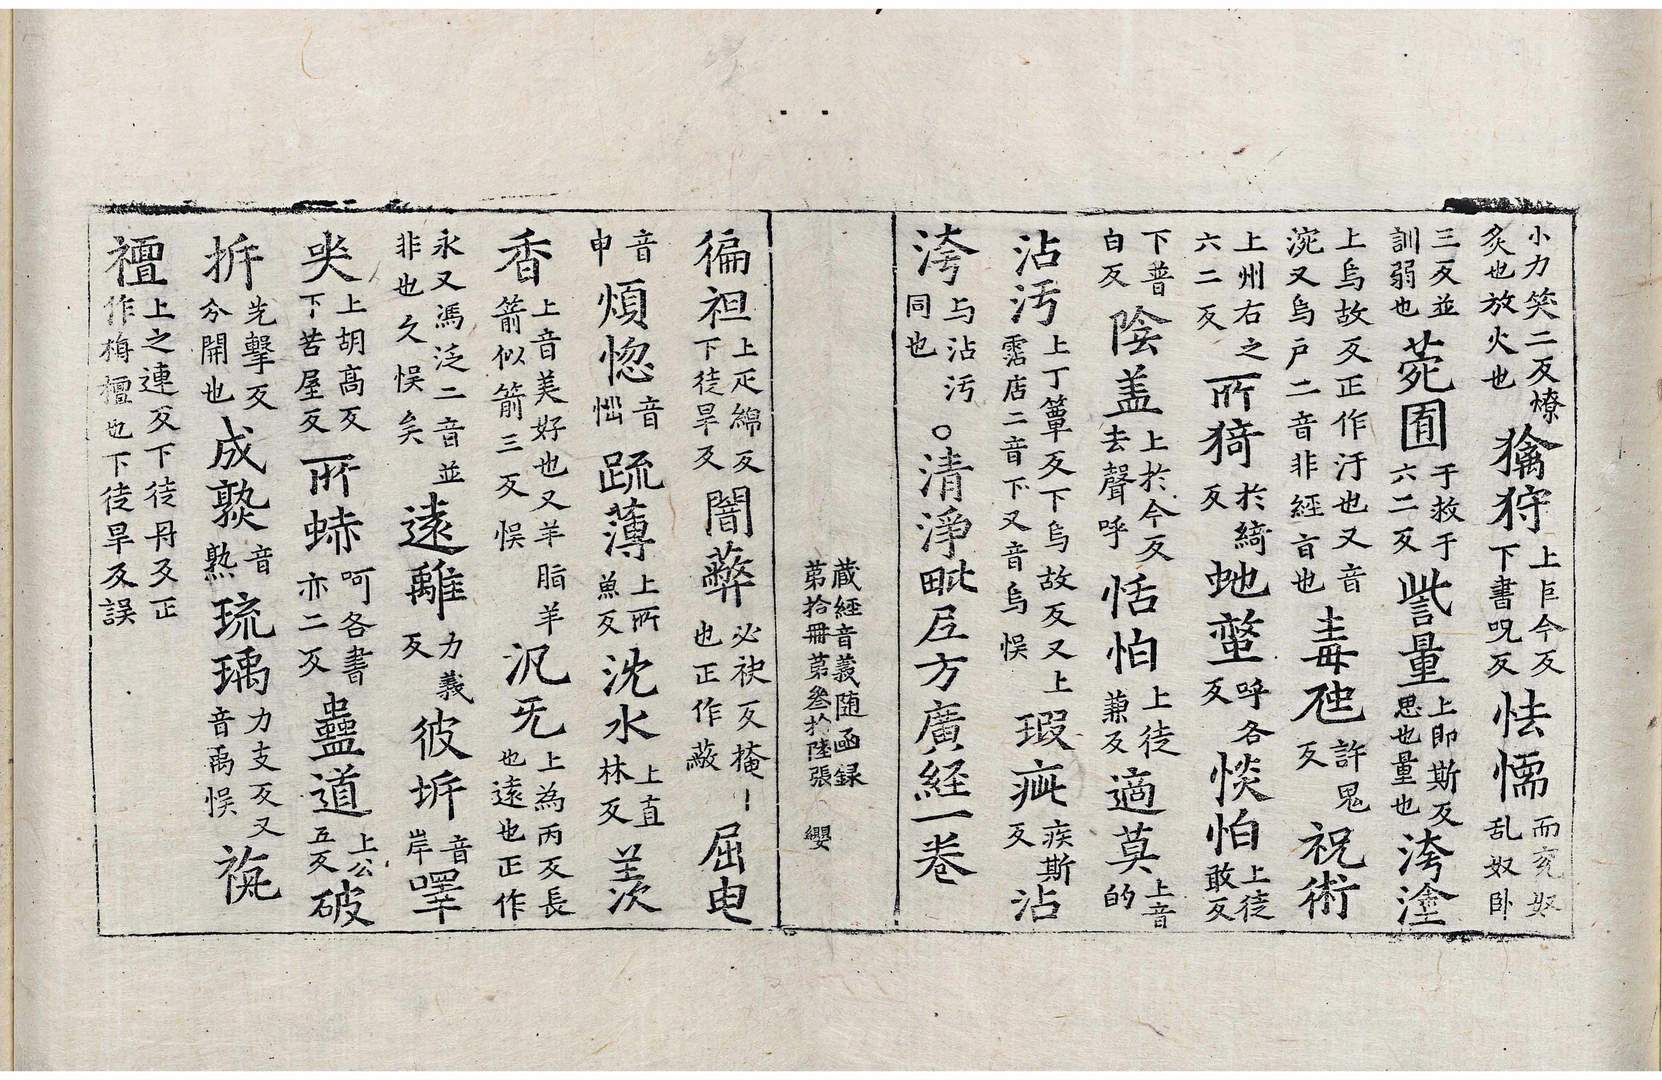 小力笑二反燎炙也放火也 擒狩上巨今反下書呪反 怯懦而兗奴乱奴卧
三反並訓弱也 菀囿于救于六二反 訾量上即斯反思也量也 洿塗
上烏故反正作汙也又音涴又烏戸二音非經音也 毒虺許鬼反 祝術
上州右之六二反 所猗於綺反 虵螫呼各反 惔怕上徒敢反
下普白反 陰盖上於今反去聲呼 恬怕上徒兼反 適莫上音的
沾汚上丁簟反下烏故反又上霑店二音下又音烏悮 瑕疵疾斯反 沾
洿与沾汚同也 ○清淨毗尼方廣経一卷
蔵經音義随函録
第拾冊第叄拾陸張 纓
徧袒上疋綿反下徒旱反 闇蔽必袂反掩丨也正作蔽 屈申
音申 煩惚音惱 疏薄上所魚反 沈水上直林反 羡
香上音美好也又羊脂羊箭似箭三反悮 汎旡上為丙反長也遠也正作
永又馮泛二音並非也久悮矣 遠離力義反 彼岸音岸 㘁
上胡髙反下苦屋反 所蛓呵各書亦二反 蠱道上公五反 破
拆先擊反分開也 成熟音熟 琉璃力支反又音禹悮 栴
檀上之連反下徒丹反正作栴檀也下徒旱反誤